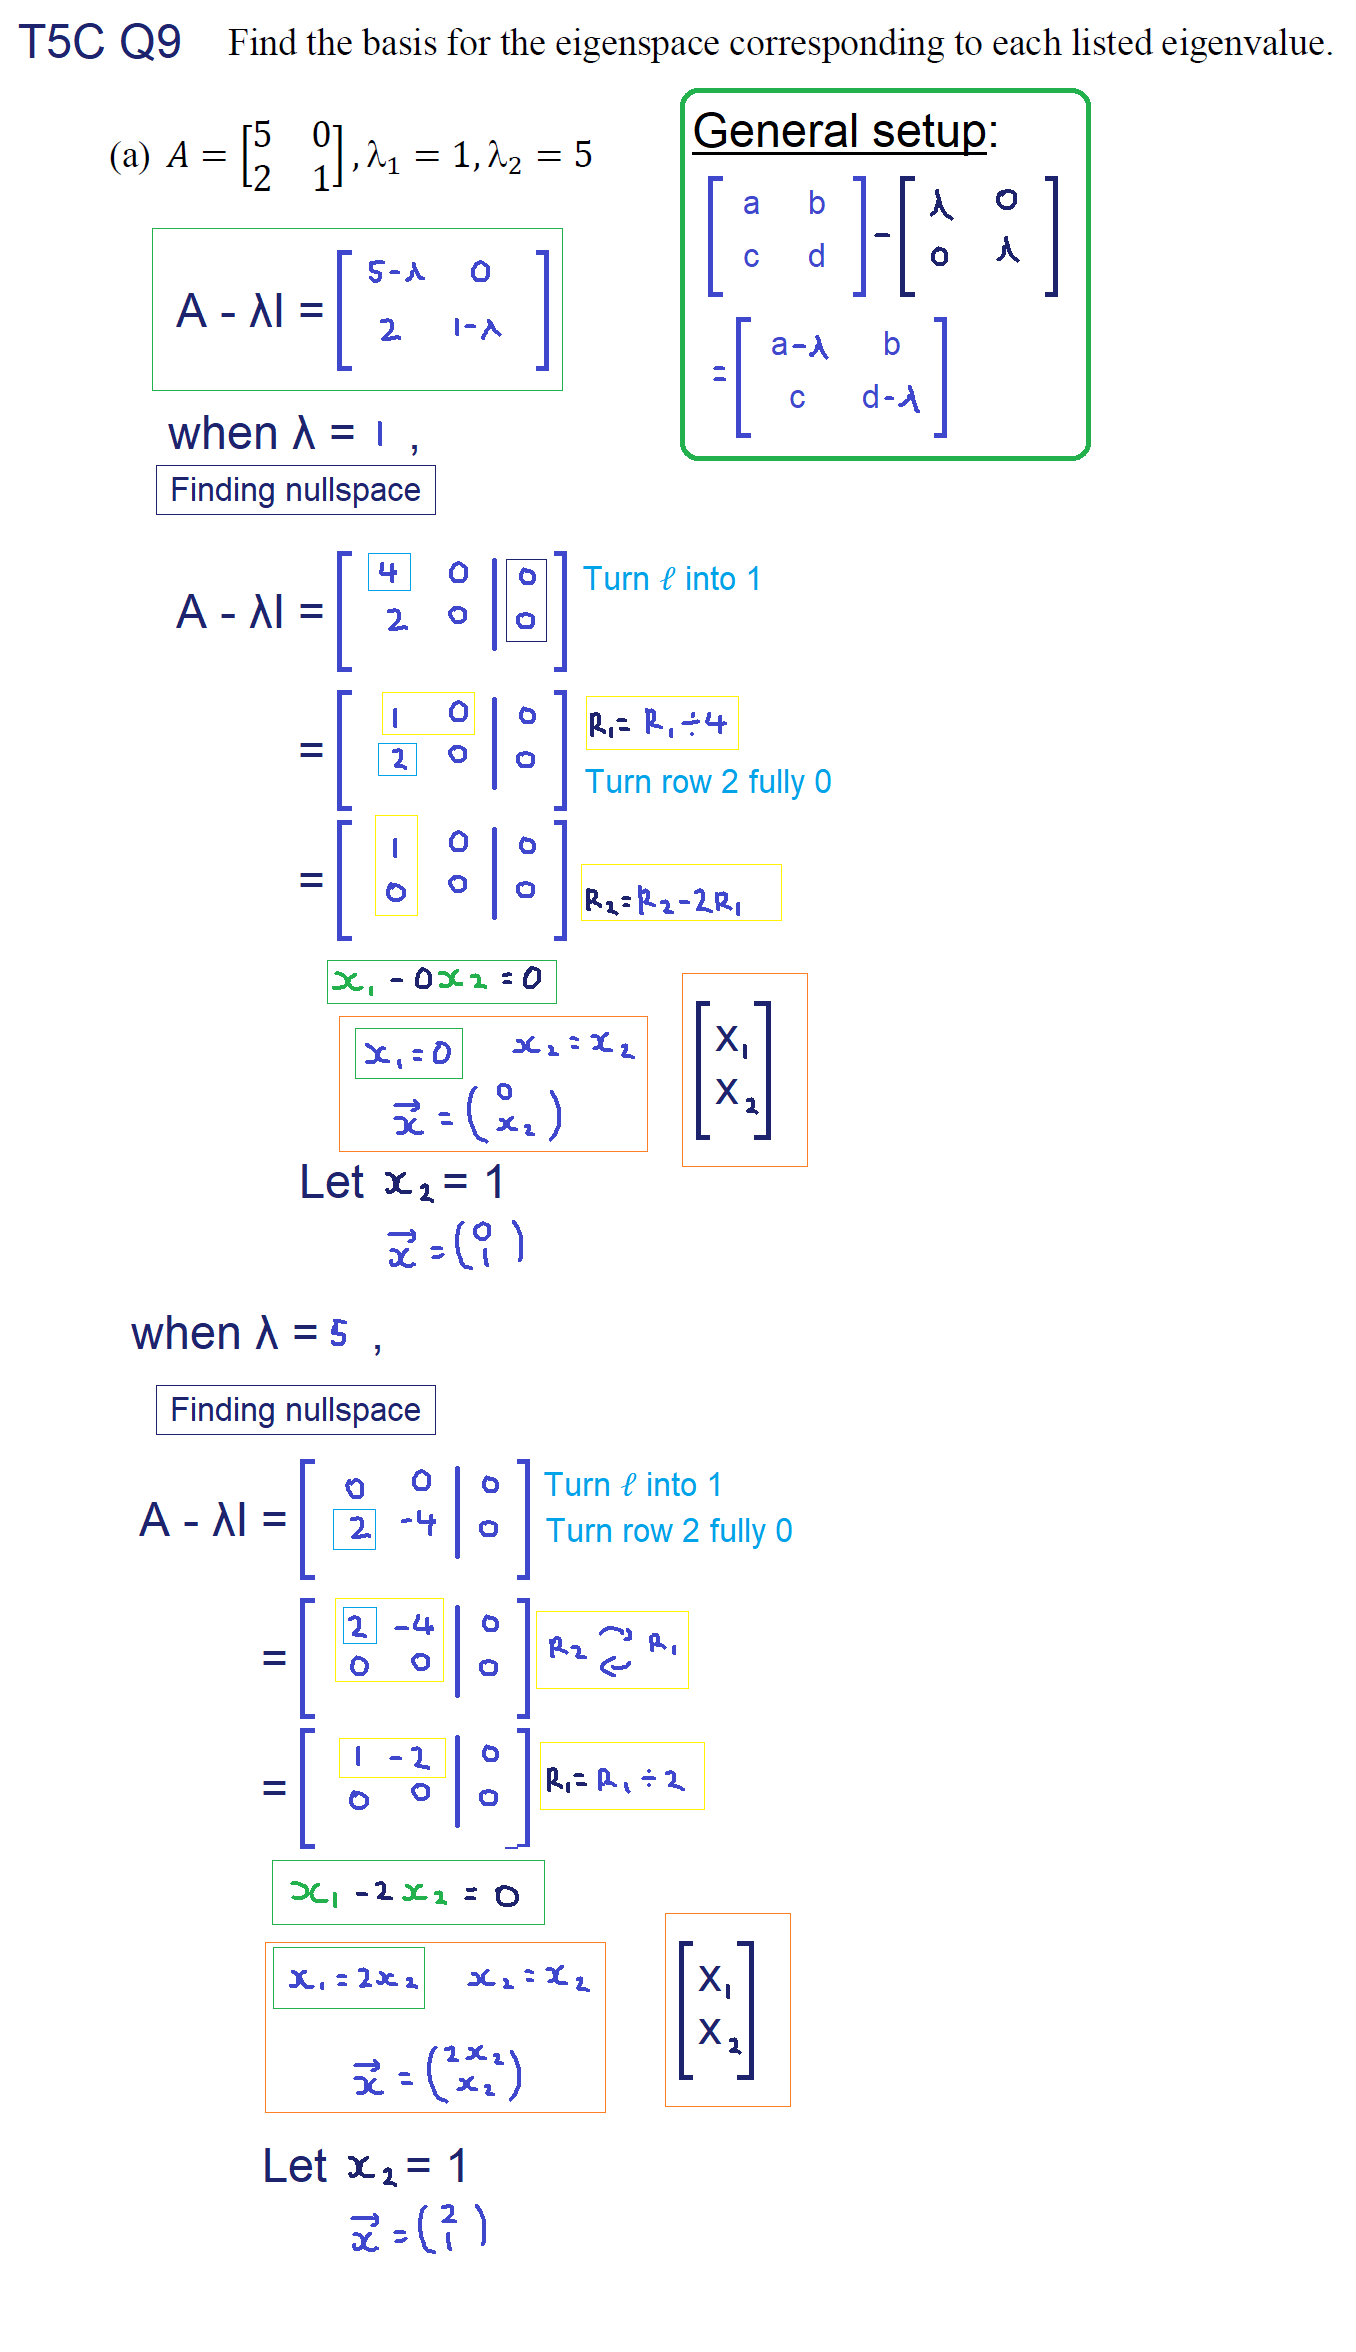 T5C Q9 Find the basis for the eigenspace corresponding to each listed eigenvalue.
General setup:
(a) A = [5 0], λ₁ = 1, λ₂ = 5
[2 1]
[a b] - [λ 0]
[c d] [0 λ]
= [a-λ b]
[c d-λ]
A - λI = [5-λ 0]
[2 1-λ]
when λ = 1 ,
Finding nullspace
A - λI = [4 0 | 0] Turn ℓ into 1
[2 0 | 0]
= [1 0 | 0] R₁= R₁÷4
[2 0 | 0] Turn row 2 fully 0
= [1 0 | 0]
[0 0 | 0] R₂=R₂-2R₁
x₁ - 0x₂ = 0
x₁=0 x₂=x₂ [x₁]
[x₂]
x⃗ = (0)
(x₂)
Let x₂ = 1
x⃗ = (0)
(1)
when λ = 5 ,
Finding nullspace
A - λI = [0 0 | 0] Turn ℓ into 1
[2 -4 | 0] Turn row 2 fully 0
= [2 -4 | 0] R₂ ⇄ R₁
[0 0 | 0]
= [1 -2 | 0] R₁= R₁÷2
[0 0 | 0]
x₁ - 2x₂ = 0
x₁=2x₂ x₂=x₂ [x₁]
[x₂]
x⃗ = (2x₂)
(x₂)
Let x₂ = 1
x⃗ = (2)
(1)